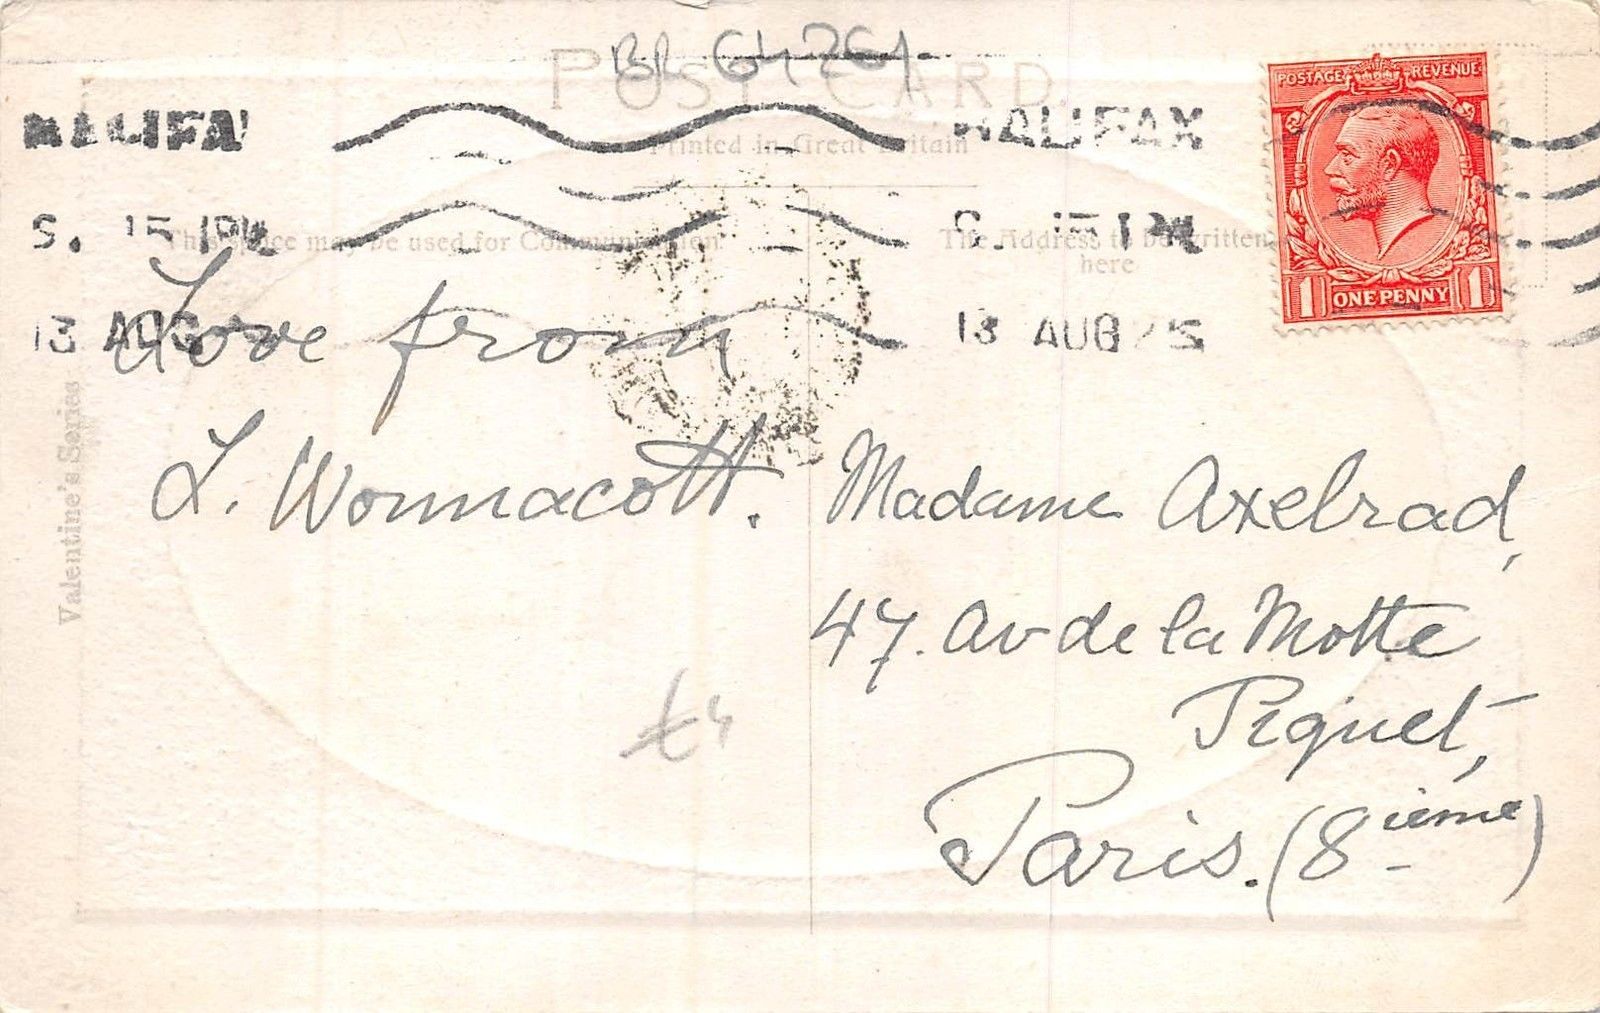 POST CARD
Printed in Great Britain
HALIFAX
S. 15 PM
13 AUG 25
POSTAGE REVENUE
1 ONE PENNY 1
This space may be used for Communication
The Address to be written
here
Valentine's Series
Love from
L. Wonnacott.
Madame Axelrad,
47. Av de la Motte
Piquet,
Paris. (8ieme)
£4